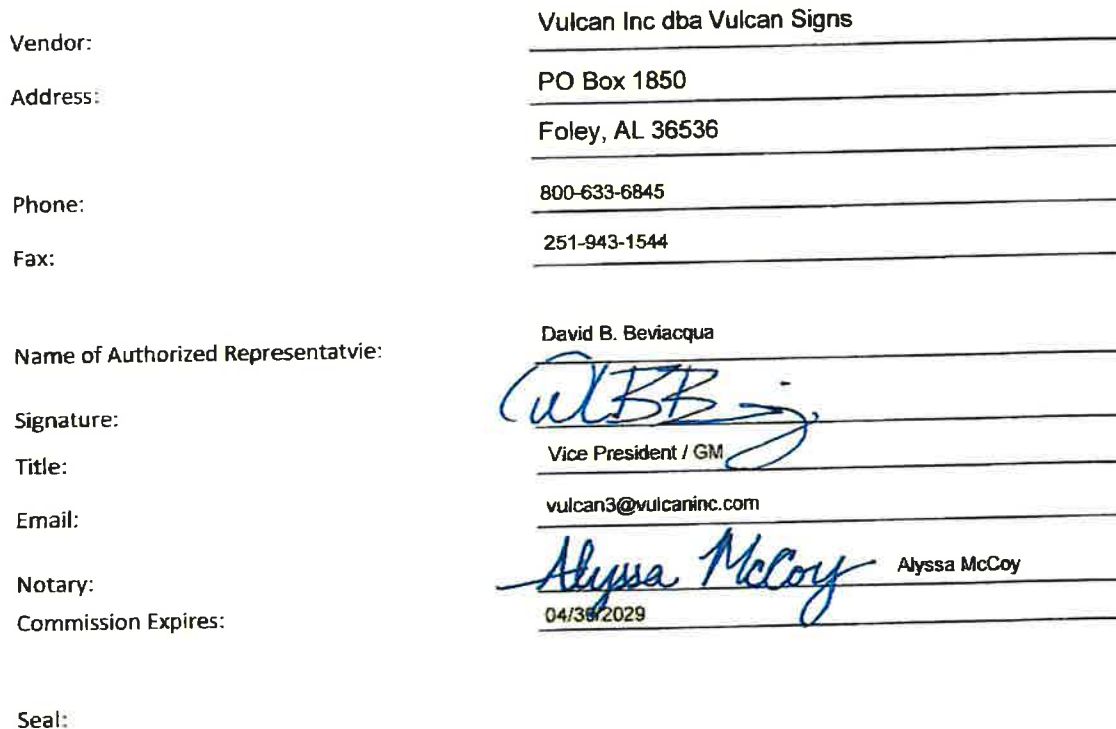 Vendor: Vulcan Inc dba Vulcan Signs
Address: PO Box 1850
Foley, AL 36536
Phone: 800-633-6845
Fax: 251-943-1544
Name of Authorized Representatvie: David B. Beviacqua
Signature:
Title: Vice President / GM
Email: vulcan3@vulcaninc.com
Notary: Alyssa McCoy Alyssa McCoy
Commission Expires:
Seal: